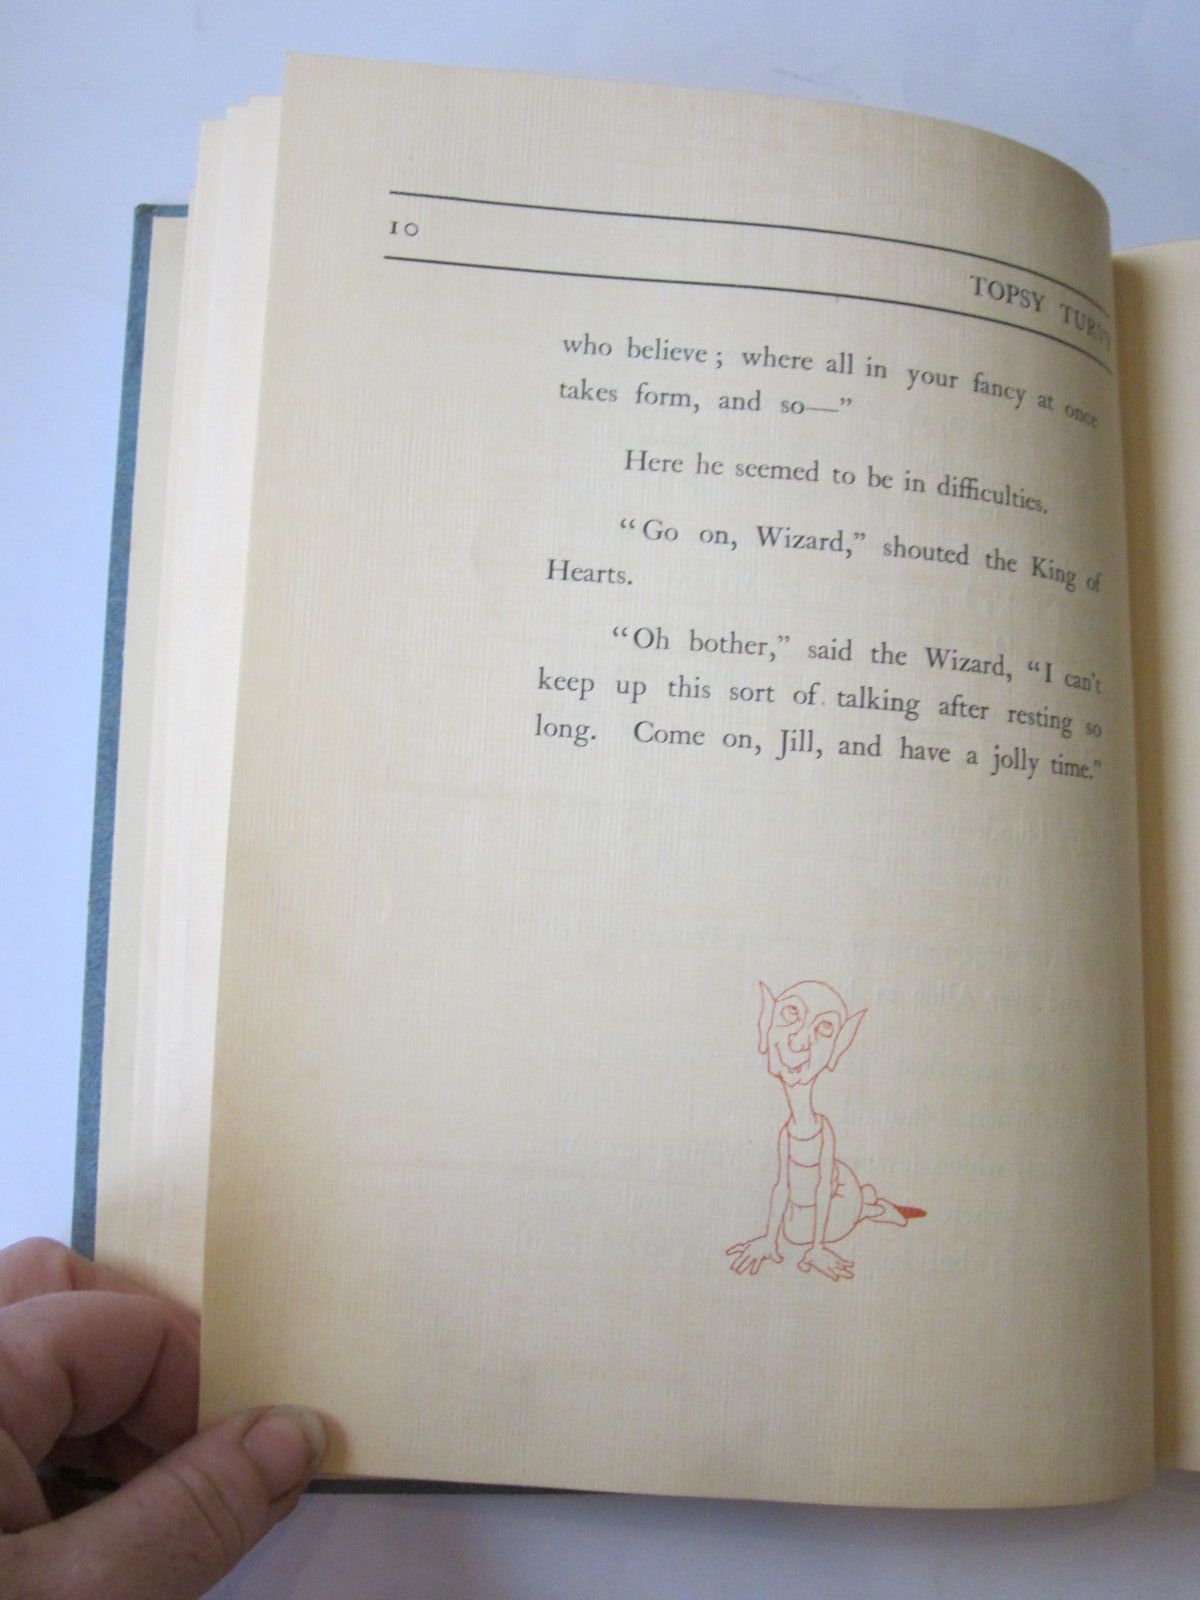 10
TOPSY TURVY
who believe; where all in your fancy at once
takes form, and so—”
Here he seemed to be in difficulties.
“Go on, Wizard,” shouted the King of
Hearts.
“Oh bother,” said the Wizard, “I can't
keep up this sort of talking after resting so
long. Come on, Jill, and have a jolly time.”